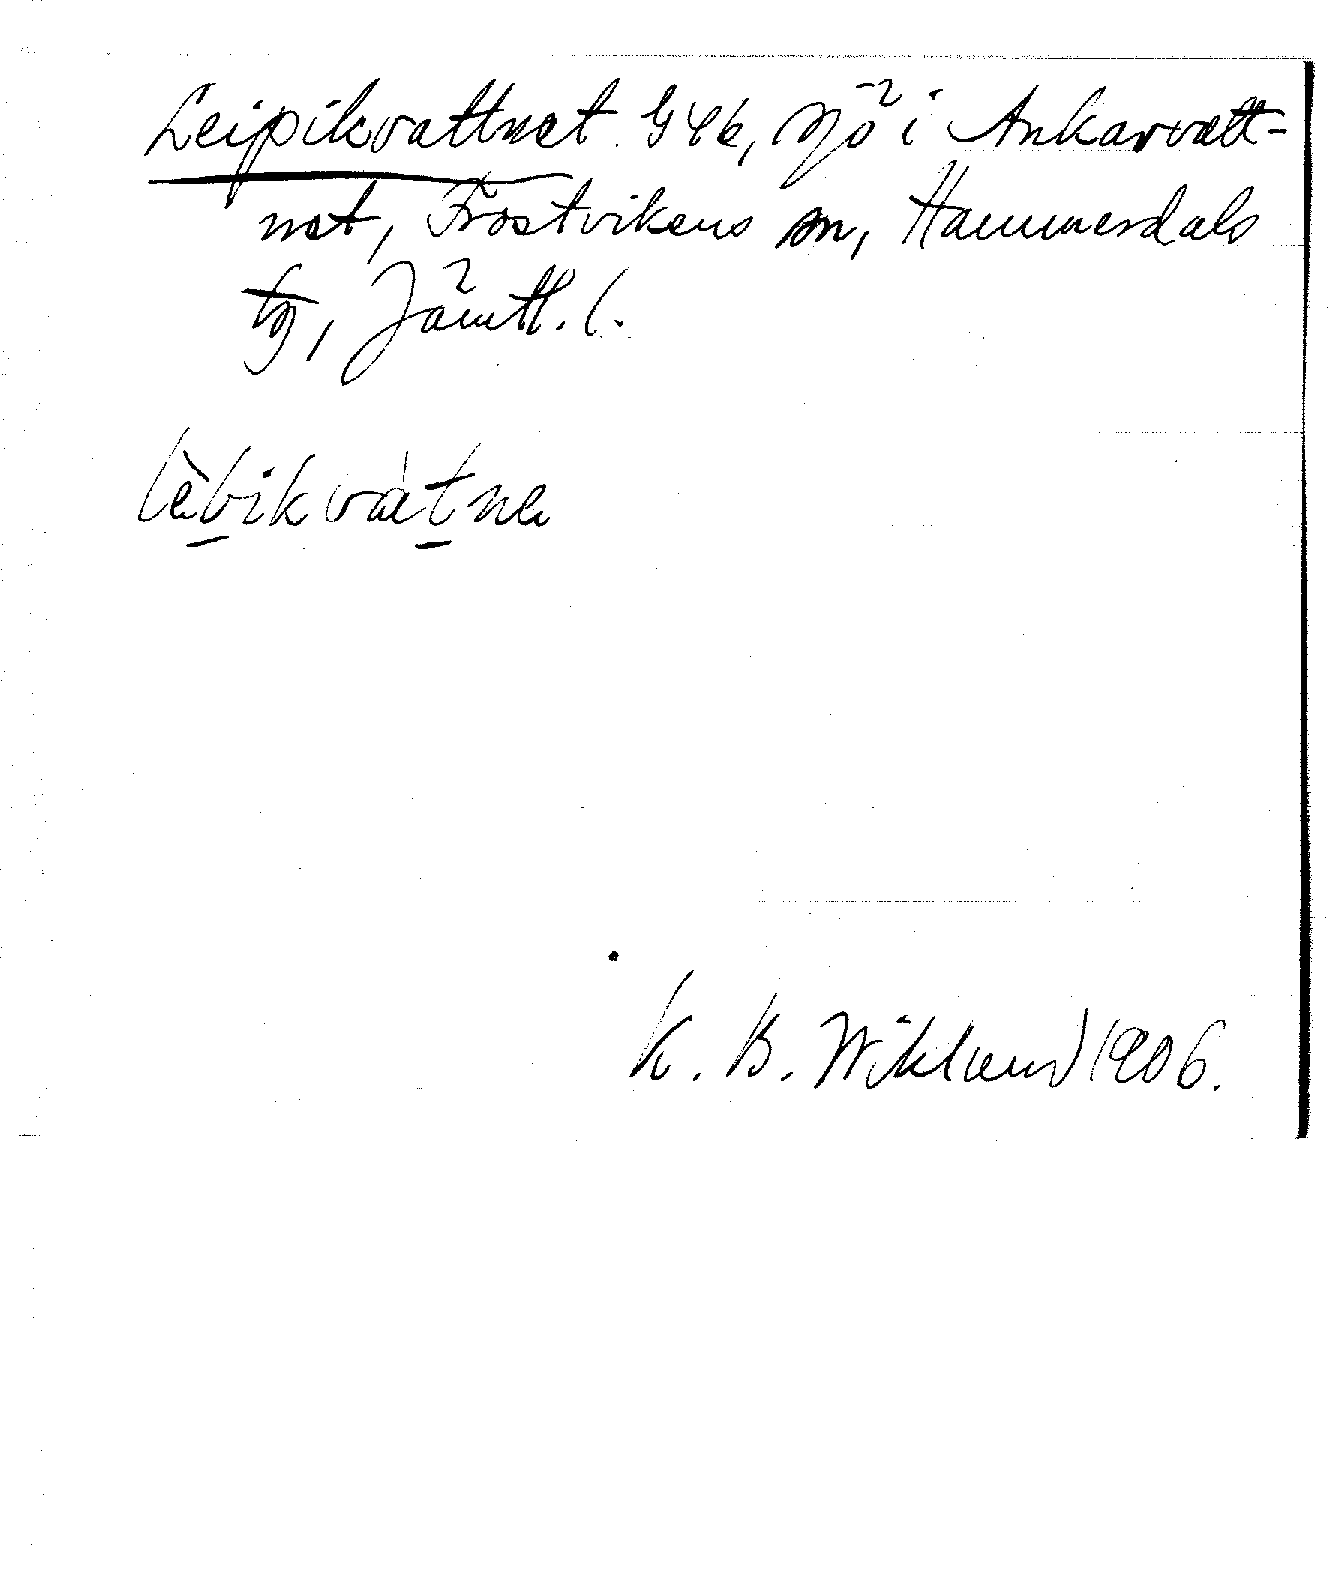 Leipikvattnet G46, sjö i Ankarvatt-
net, Frostvikens sn, Hammerdals
tg, Jämtl. l.
lèbikvàtnɐ
K. B. Wiklund 1906.